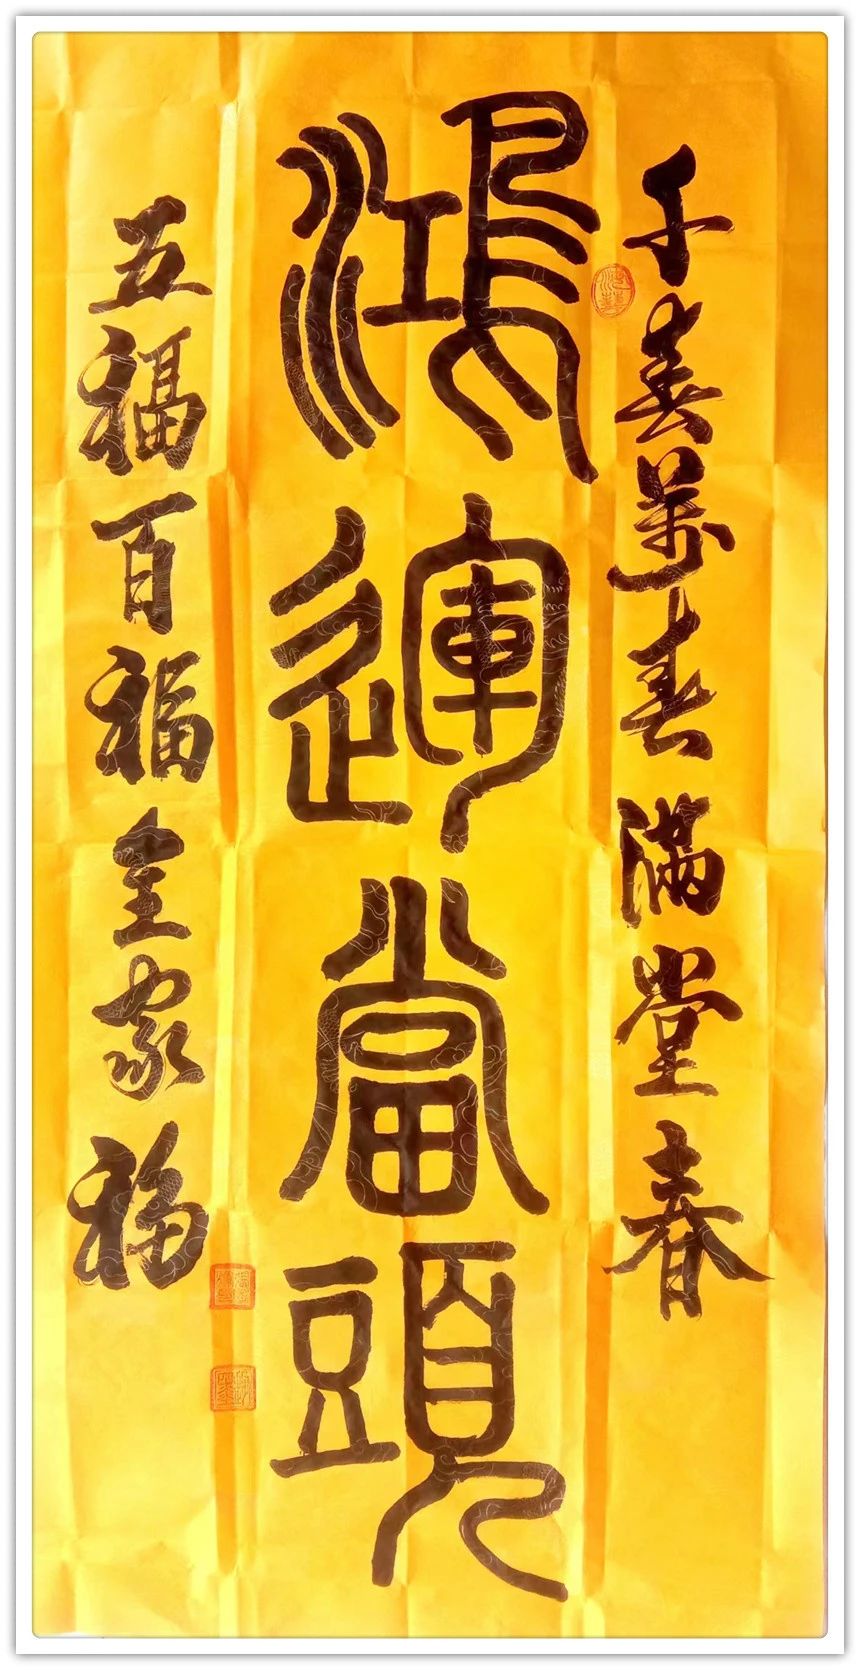 千春萬春滿堂春
鴻運當頭
五福百福全家福